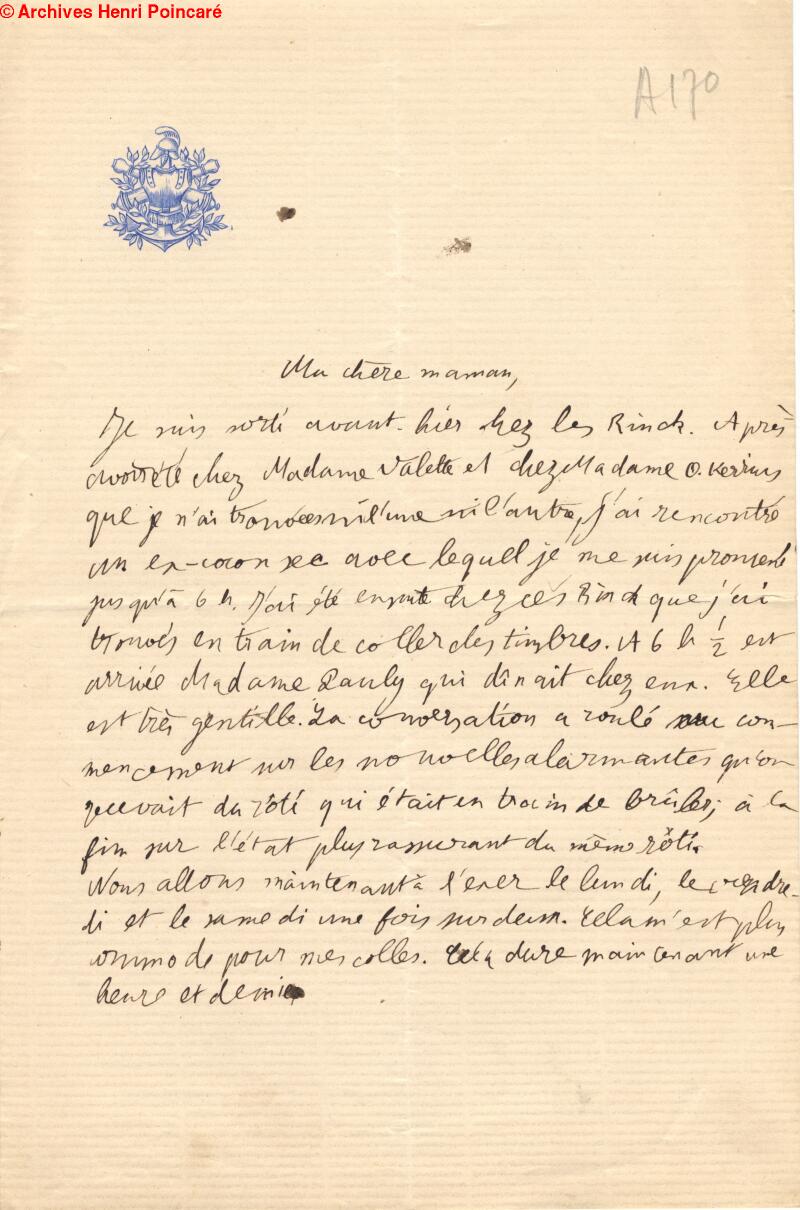 © Archives Henri Poincaré
A170
Ma chère maman,
Je suis sorti avant-hier chez les Rinck. Après
avoir été chez Madame Valette et chez Madame O.
que je n'ai trouvées ni l'une ni l'autre, j'ai rencontré
un ex-cocon sec avec lequel je me suis promené
jusqu'à 6 h. J'ai été ensuite chez les Rinck que j'ai
trouvés en train de coller des timbres. A 6 h ½ est
arrivée Madame Pauly qui dînait chez eux. Elle
est très gentille. La conversation a roulé au com-
mencement sur les nouvelles alarmantes qu'on
recevait du rôti qui était en train de brûler; à la
fin sur l'état plus rassurant du même rôti.
Nous allons maintenant à l'exer le lundi, le vendre-
di et le samedi une fois sur deux. Cela m'est plus
commode pour mes colles. Cela dure maintenant une
heure et demie